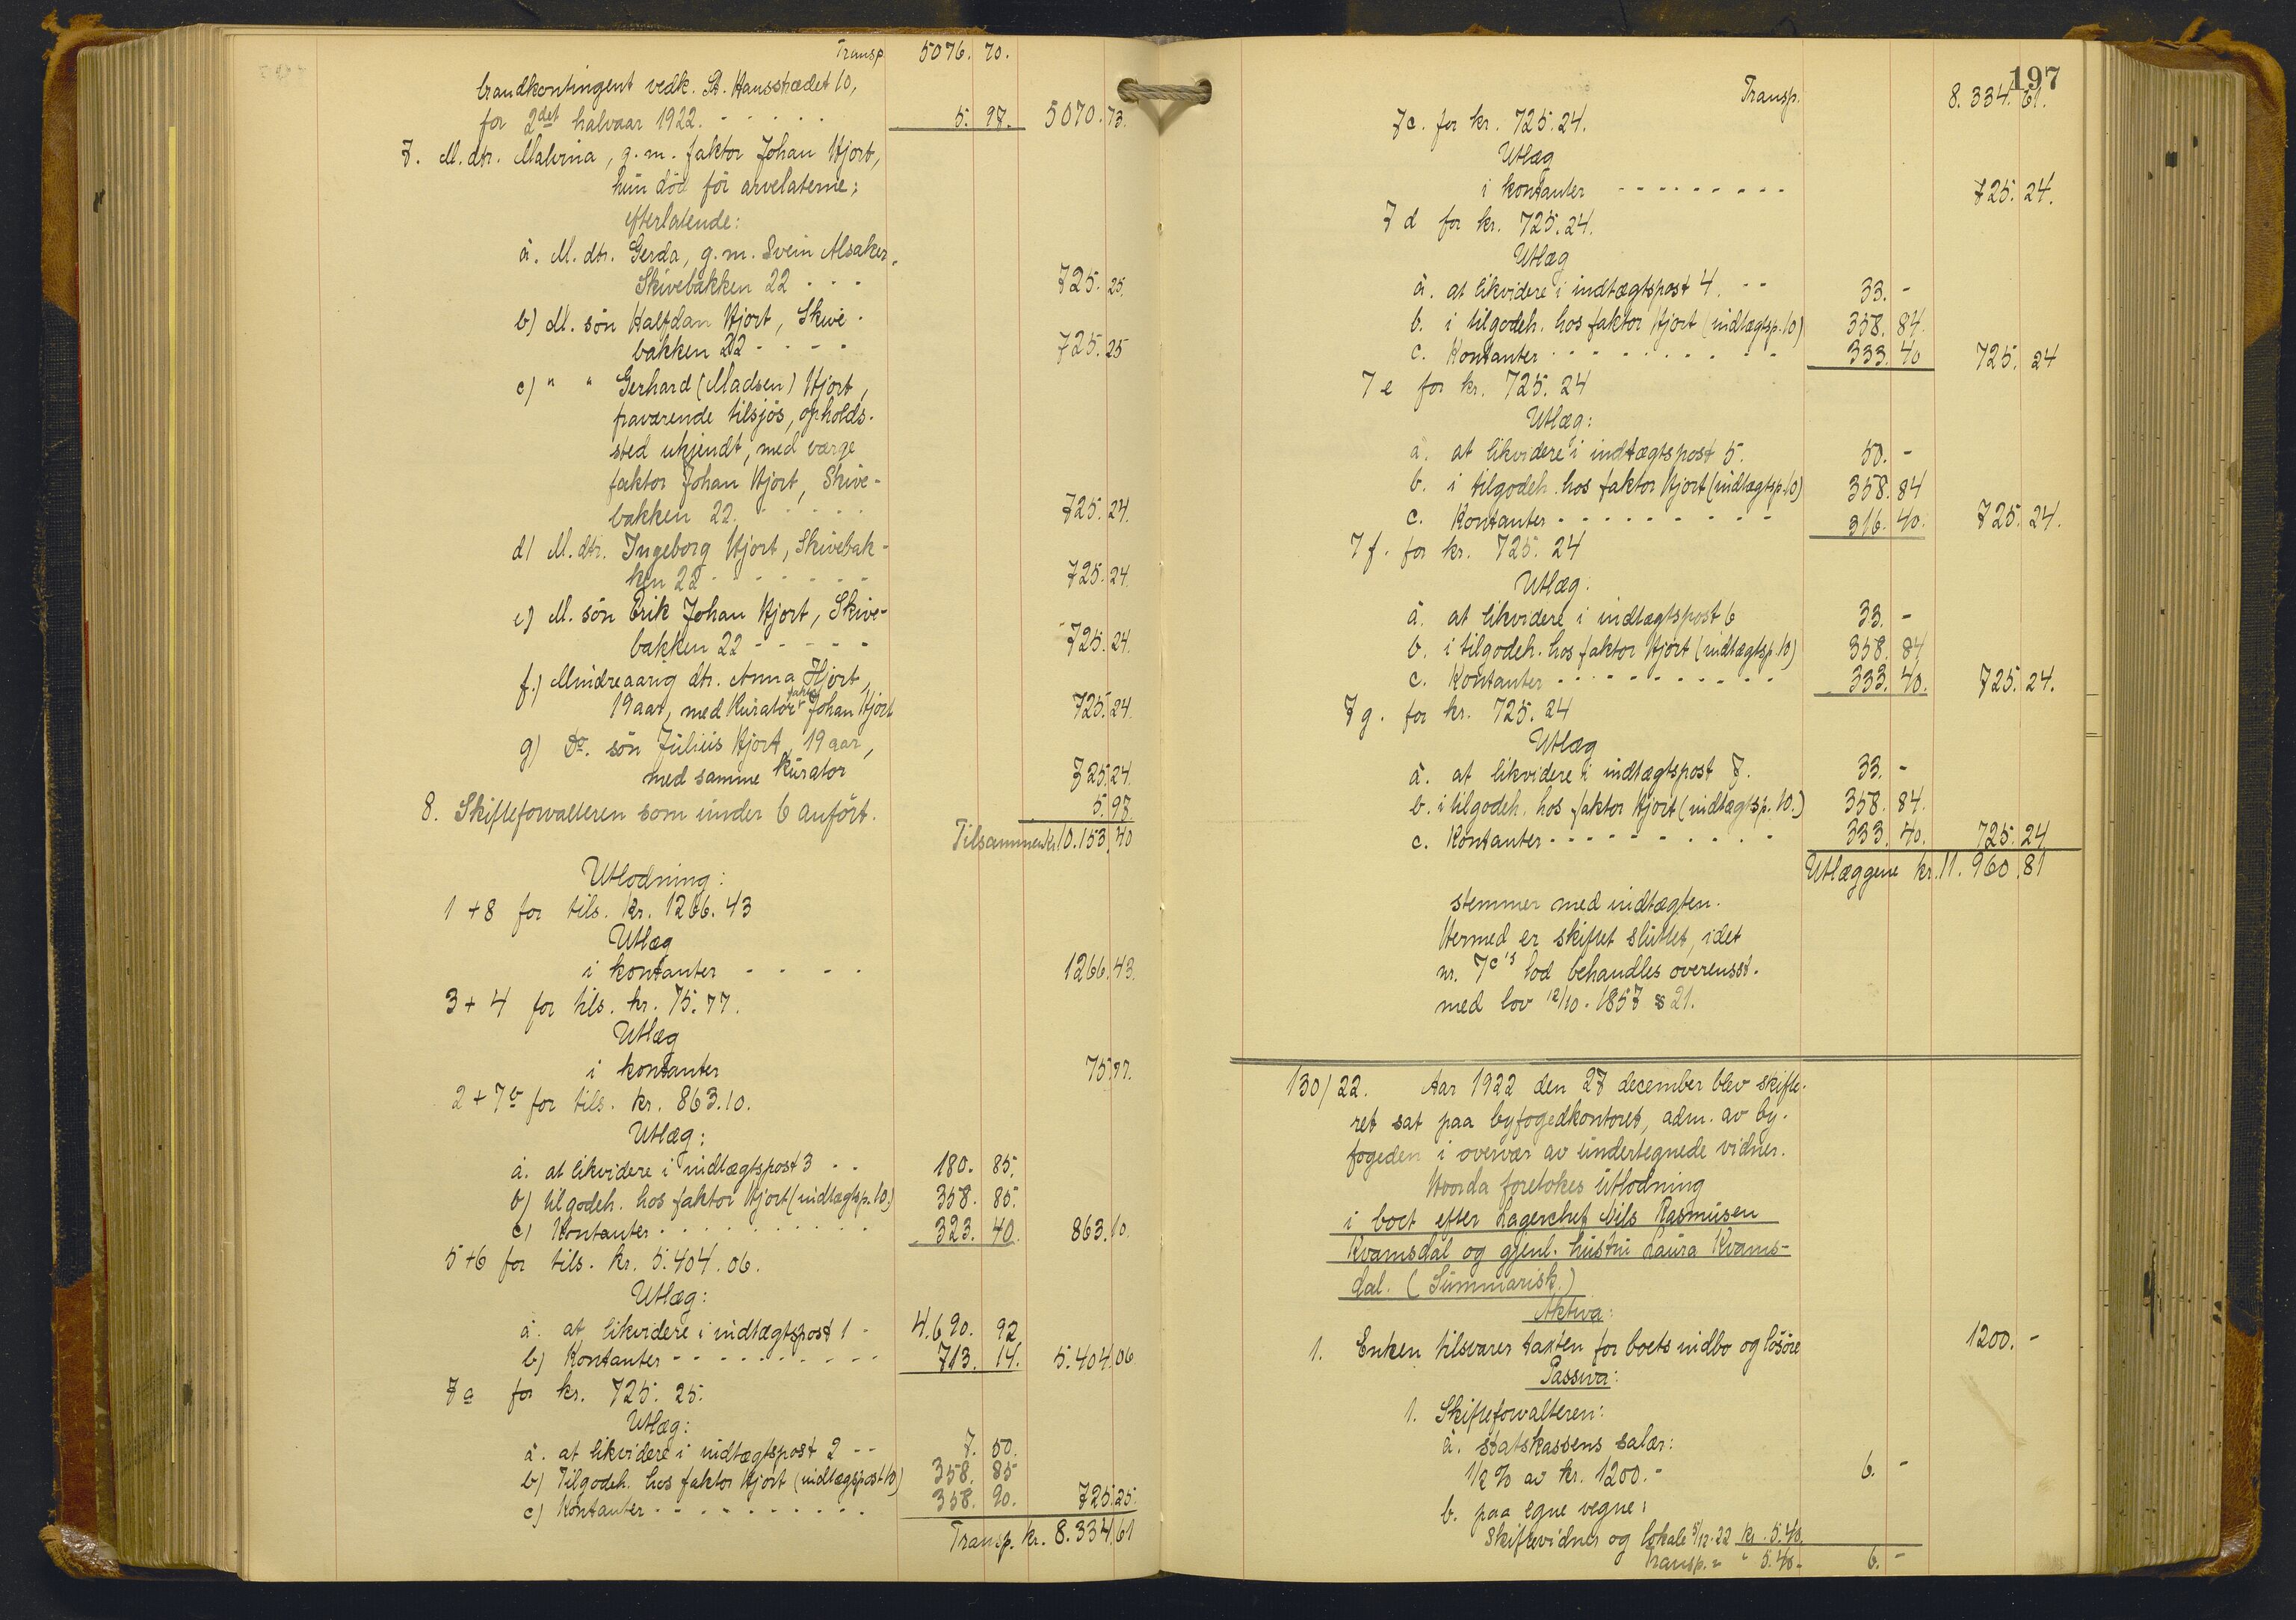 Transp. 5076. 70.
brandkontingent vedk. St. Hansstrædet 10,
for 2det halvaar 1922. - - - - - 5. 97. 5070. 73.
7. M. dtr. Malvina, g. m. faktor Johan Hjort,
hun död för arvelaterne;
efterlatende:
a. M. dtr. Gerda, g. m. Svein Alsaker,
Skivebakken 22 - - - 725. 25.
b) M. sön Halfdan Hjort, Skive-
bakken 22 - - - - 725. 25
c) " " Gerhard (Madsen) Hjort,
fraværende tilsjös, opholds-
sted ukjendt, med værge
faktor Johan Hjort, Skive-
bakken 22. - - - - - 725. 24.
d) M. dtr. Ingeborg Hjort, Skivebak-
ken 22 - - - - - - - 725. 24.
e) M. sön Erik Johan Hjort, Skive-
bakken 22 - - - - - 725. 24.
f.) Mindreaarig dtr. Anna Hjort,
19 aar, med Kurator faktor Johan Hjort 725. 24.
g) Do. sön Julius Hjort, 19 aar,
med samme Kurator 725. 24.
8. Skifteforvalteren som under 6 anfört. 5. 97
Tilsammen kr. 10.153. 40
Utlodning:
1 + 8 for tils. Kr. 1266. 43
Utlæg
i kontanter - - - - 1266. 43.
3 + 4 for tils. kr. 75. 77.
Utlæg
i kontanter 75. 77.
2 + 7b for tils. kr. 863.10.
Utlæg:
a. at likvidere i indtægtspost 3 - - 180. 85.
b) tilgodeh. hos faktor Hjort (indtægtsp. 10.) 358. 85.
c) Kontanter - - - - - - - - - - 323. 40. 863. 10.
5 + 6 for tils. kr. 5.404. 06.
Utlæg:
a. at likvidere i indtægtspost 1 - 4.690. 92
b) Kontanter - - - - - - - - - - 713. 14. 5.404. 06
7a for kr. 725. 25.
Utlæg:
a. at likvidere i indtægtspost 2 - - 7. 50.
b) Tilgodeh. hos faktor Hjort (indtægtspost 10) 358. 85
c) Kontanter - - - - - - - - - 358. 90. 725. 25.
Transp. kr. 8.334. 61
197
Transp. 8.334. 61.
7c. for kr. 725. 24.
Utlæg
i kontanter - - - - - - - - - 725. 24.
7 d for kr. 725. 24.
Utlæg
a. at likvidere i indtægtspost 4. - - 33. -
b. i tilgodeh. hos faktor Hjort (indtægtsp. 10) 358. 84.
c. Kontanter - - - - - - - - - - 333. 40 725. 24
7 e for kr. 725. 24
Utlæg:
a. at likvidere i indtægtspost 5. 50. -
b. i tilgodeh. hos faktor Hjort (indtægtsp. 10) 358. 84
c. Kontanter - - - - - - - - - 316. 40. 725. 24.
7 f. for kr. 725. 24
Utlæg:
a. at likvidere i indtægtspost 6 33. -
b. i tilgodeh. hos faktor Hjort (indtægtsp. 10) 358. 84
c. Kontanter - - - - - - - - - - 333. 40. 725. 24.
7 g. for kr. 725. 24
Utlæg
a. at likvidere i indtægtspost 7. 33. -
b. i tilgodeh. hos faktor Hjort (indtægtsp. 10.) 358. 84.
c. Kontanter - - - - - - - - - - 333. 40. 725. 24
Utlæggene kr. 11. 960. 81
stemmer med indtægten.
Hermed er skiftet sluttet, idet
nr. 7c's lod behandles overensst.
med lov 12/10. 1857 § 21.
130/22. Aar 1922 den 27 december blev skifte-
ret sat paa byfogedkontoret, adm. av by-
fogeden i overvær av undertegnede vidner.
Hvorda foretokes Utlodning
i boet efter Lagerchef Nils Rasmusen
Kvamsdal og gjenl. hustru Laura Kvams-
dal. (Summarisk.)
Aktiva:
1. Enken tilsvarer taxten for boets indbo og lösöre 1200. -
Passiva:
1. Skifteforvalteren:
a. statskassens salær:
1/2 % av kr. 1200. - 6. -
b. paa egne vegne:
Skiftevidner og lokale 5/12.22 kr. 5.40.
Transp. " " 5.40. 6. -